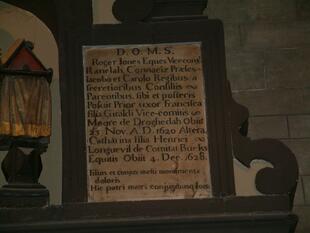 D. O. M. S.
Roger Jones Eques Vicecom
Ranelah, Connaciæ Præses
Iacobo et Carolo Regibus a
secretioribus Consiliis
Parentibus, sibi et posteris
Posuit Prior uxor Francisca
filia Giraldi Vice-comitis
Moore de Droghedah Obiit
23 Nov. A. D. 1620 Altera
Catharina filia Henrici
Longuevil de Comitat Bucks
Equitis Obiit 4 Dec. 1628.
filius et conjux mæsti monumenta
doloris
Hic patri matri conjugibusq